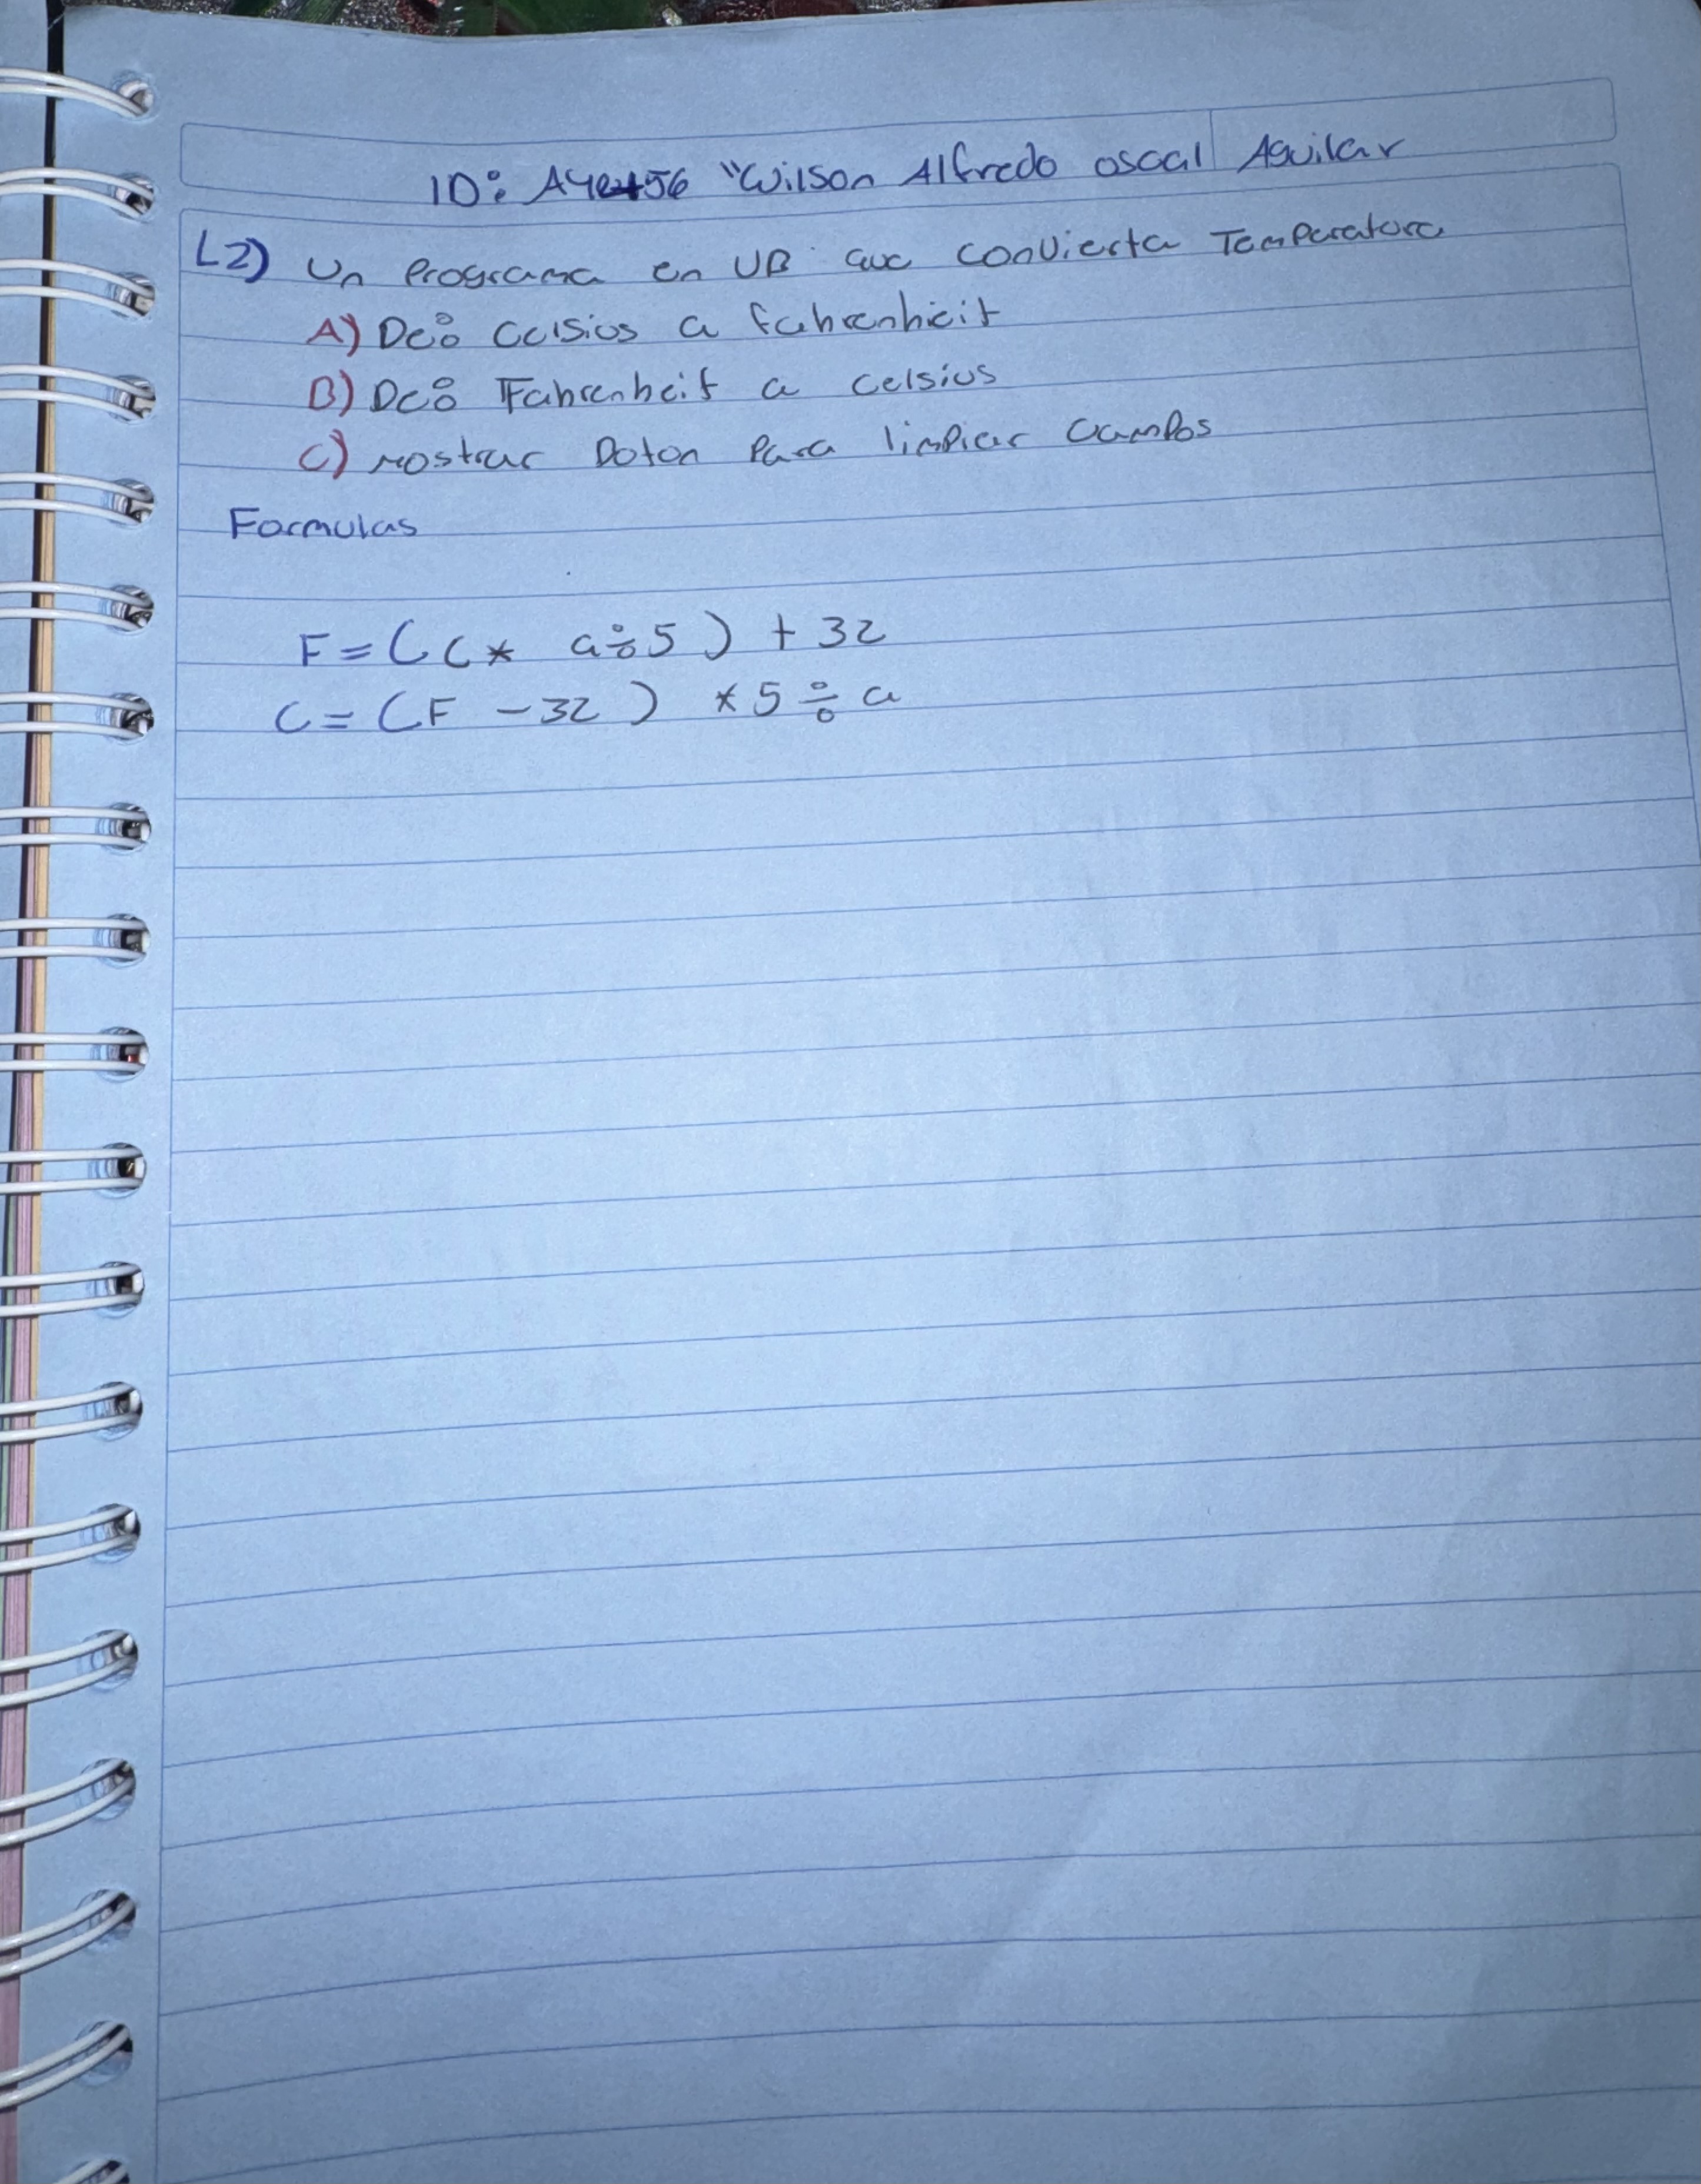 ID: "Wilson Alfredo oscal Aguilar
L2) Un Programa en VB que convierta Temperatura
A) De: Celsius a fahrenheit
B) De: Fahrenheit a celsius
C) mostrar Boton Para limpiar campos
Formulas
F = ( C * 9 ÷ 5 ) + 32
C = ( F - 32 ) * 5 ÷ 9